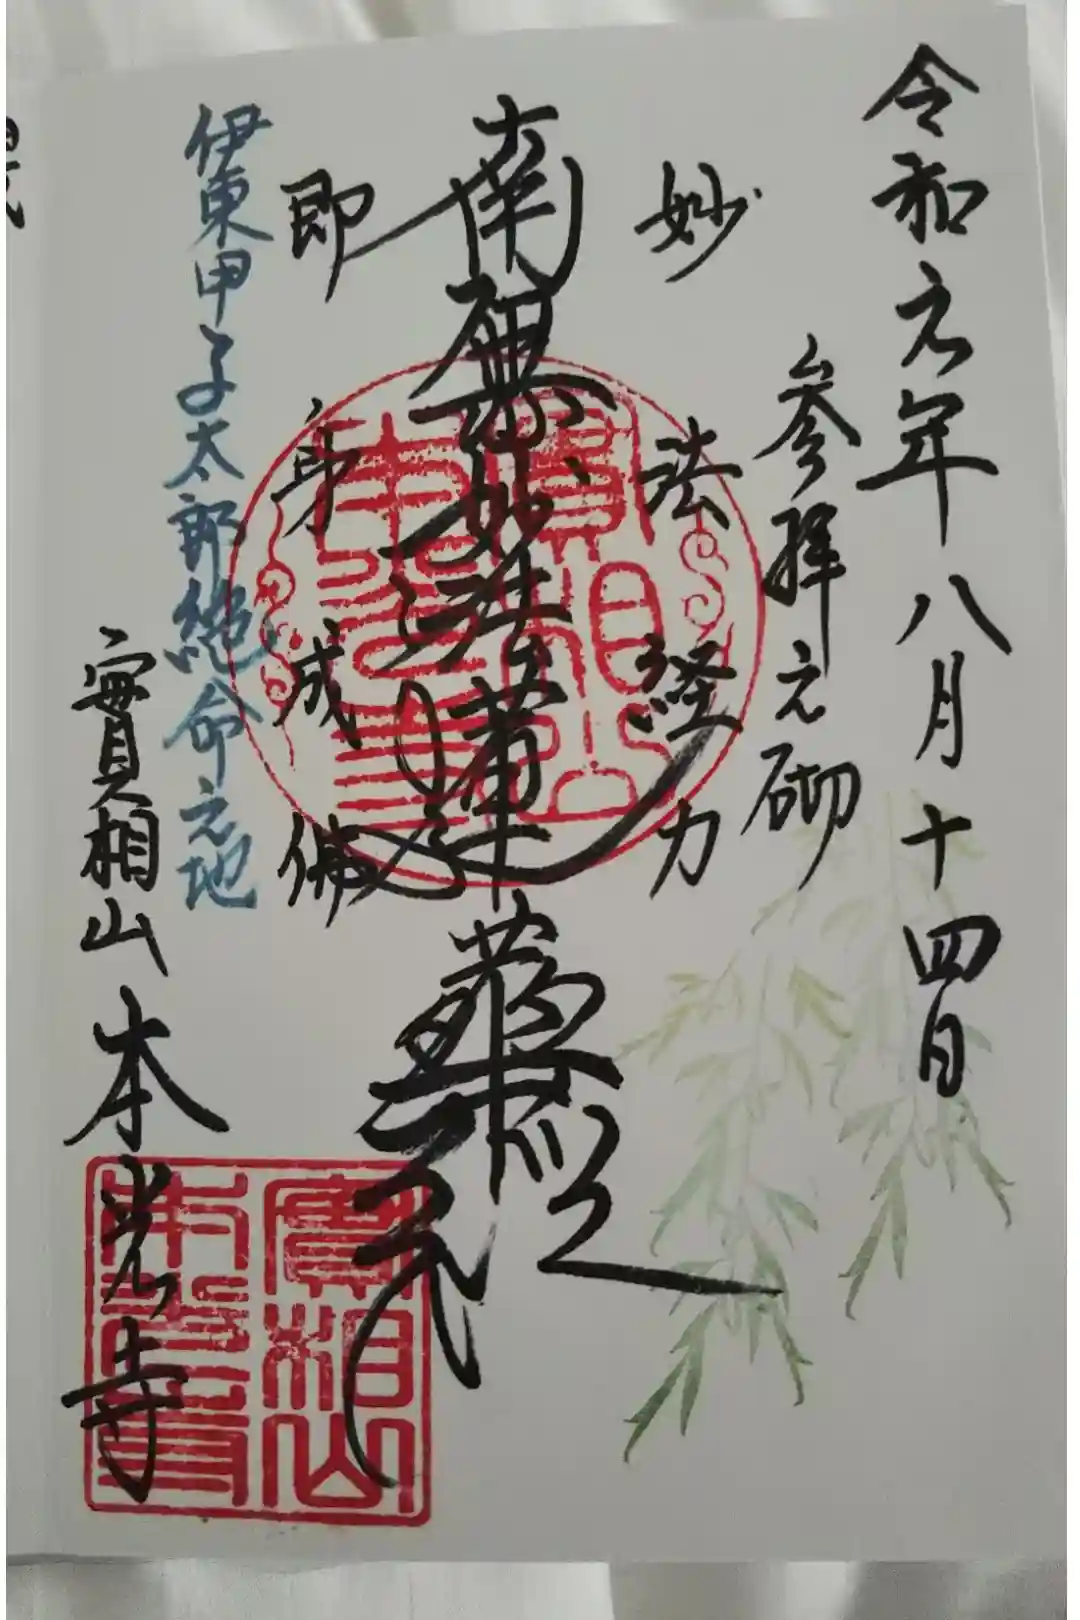 令和元年八月十四日
参拝之砌
妙法経力
南無妙法蓮華経
即身成佛
伊東甲子太郎絶命之地
實相山本光寺
實相山
本光寺